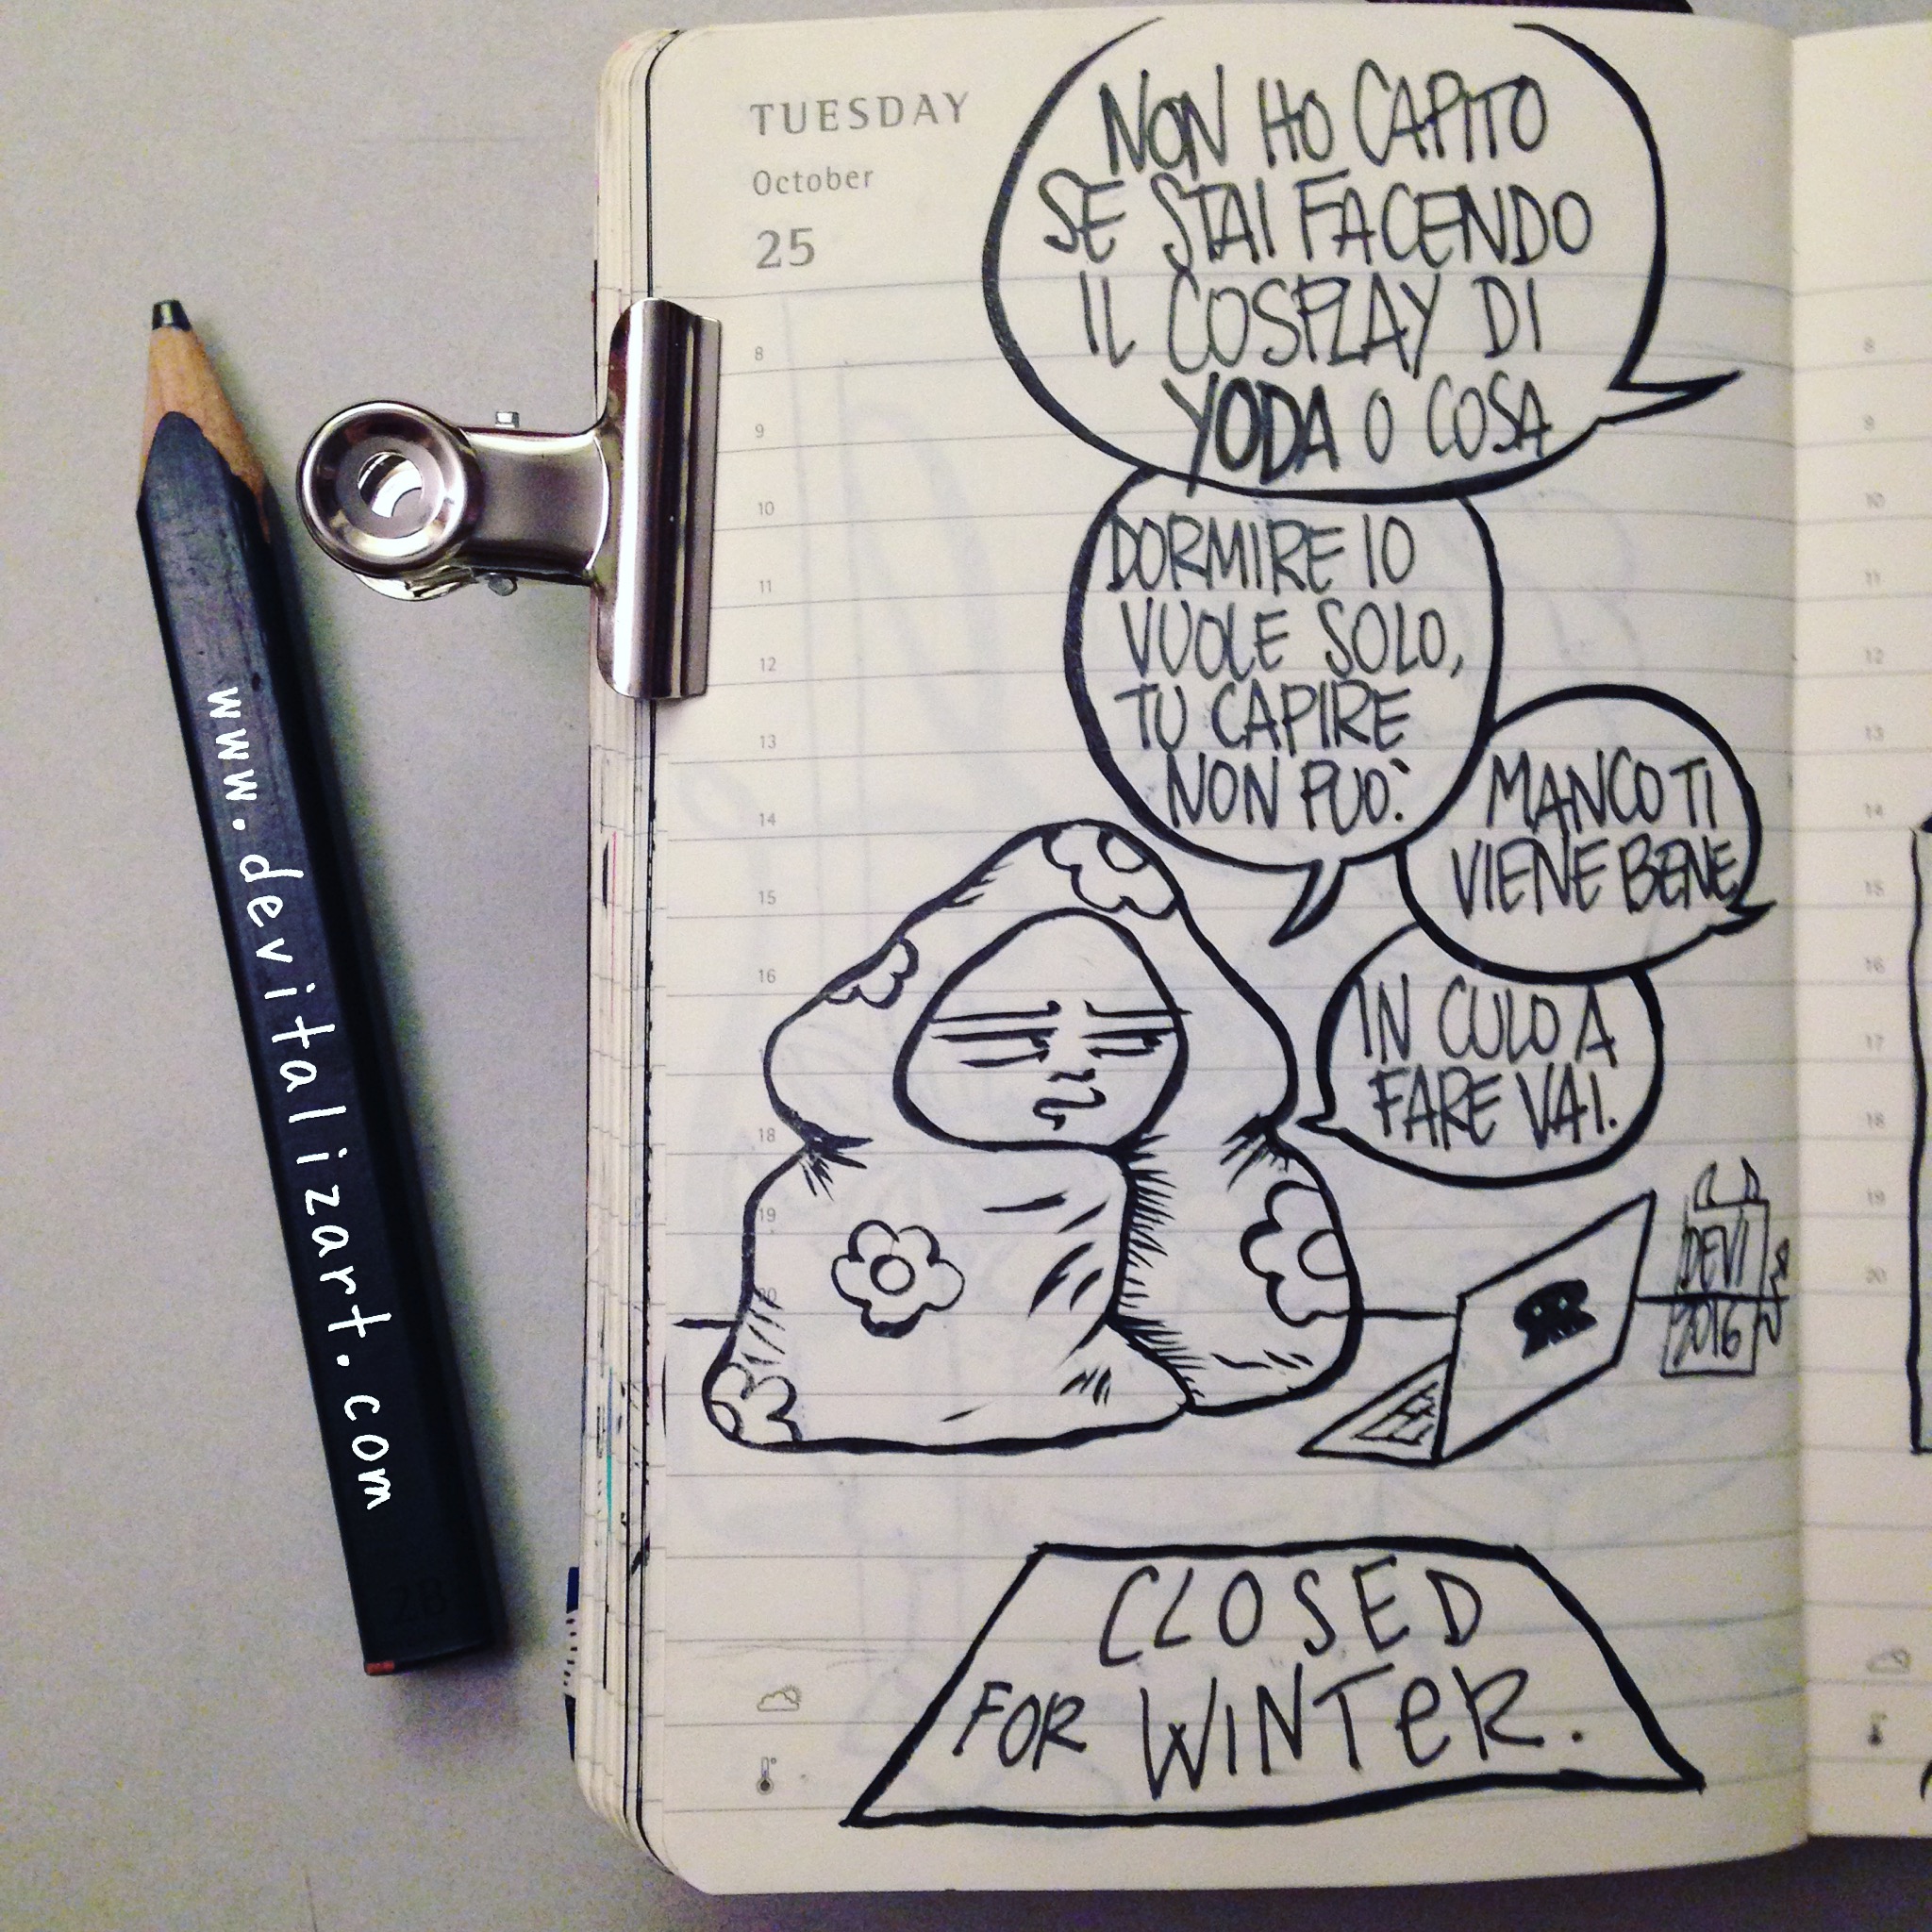 TUESDAY
October
25
NON HO CAPITO
SE STAI FACENDO
IL COSPLAY DI
YODA O COSA
DORMIRE IO
VUOLE SOLO,
TU CAPIRE
NON PUO'.
MANCO TI
VIENE BENE
IN CULO A
FARE VAI.
DEVI
2016
CLOSED
FOR WINTER.
8
9
10
11
12
13
14
15
16
18
19
20
8
9
10
11
12
13
14
15
16
17
18
19
20
www.devitalizart.com
2B